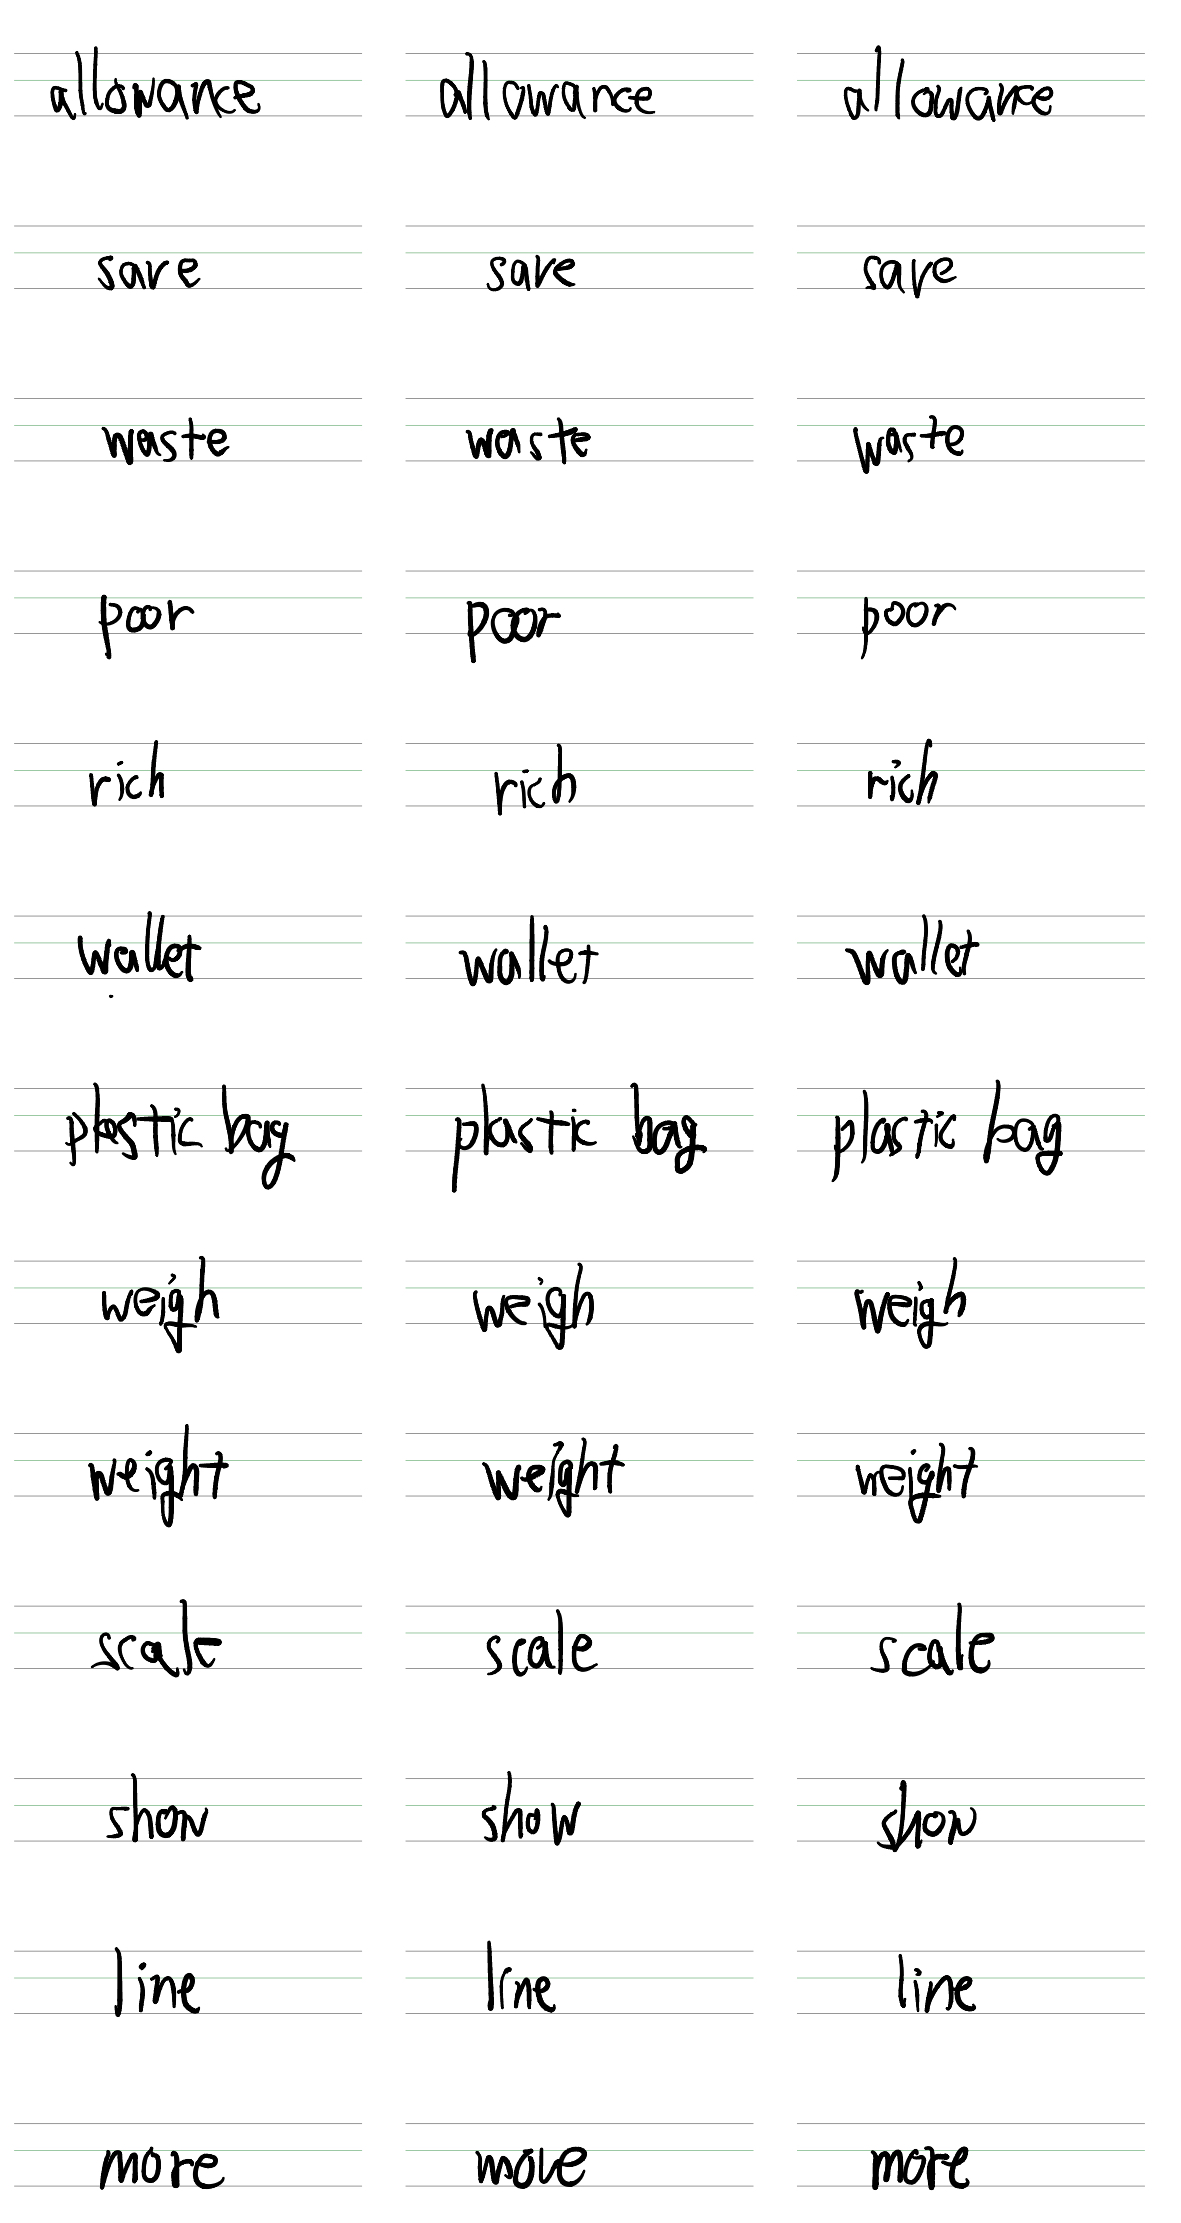 allowance allowance allowance
save save save
waste waste waste
poor poor poor
rich rich rich
wallet wallet wallet
plastic bag plastic bag plastic bag
weigh weigh weigh
weight weight weight
scale scale scale
show show show
line line line
more more more